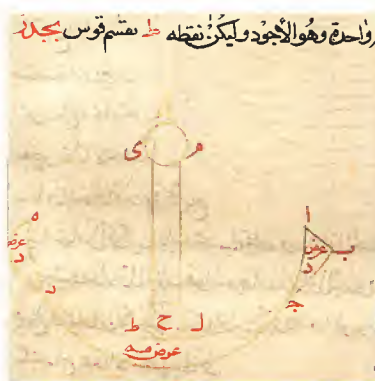 واحدة وهو الأجود وليكن نقطه ط نقسم قوس بجدز
ى م
ا
عرض ب
د
ج
ه
عرض
د
د
ط ح ل
عرض مه